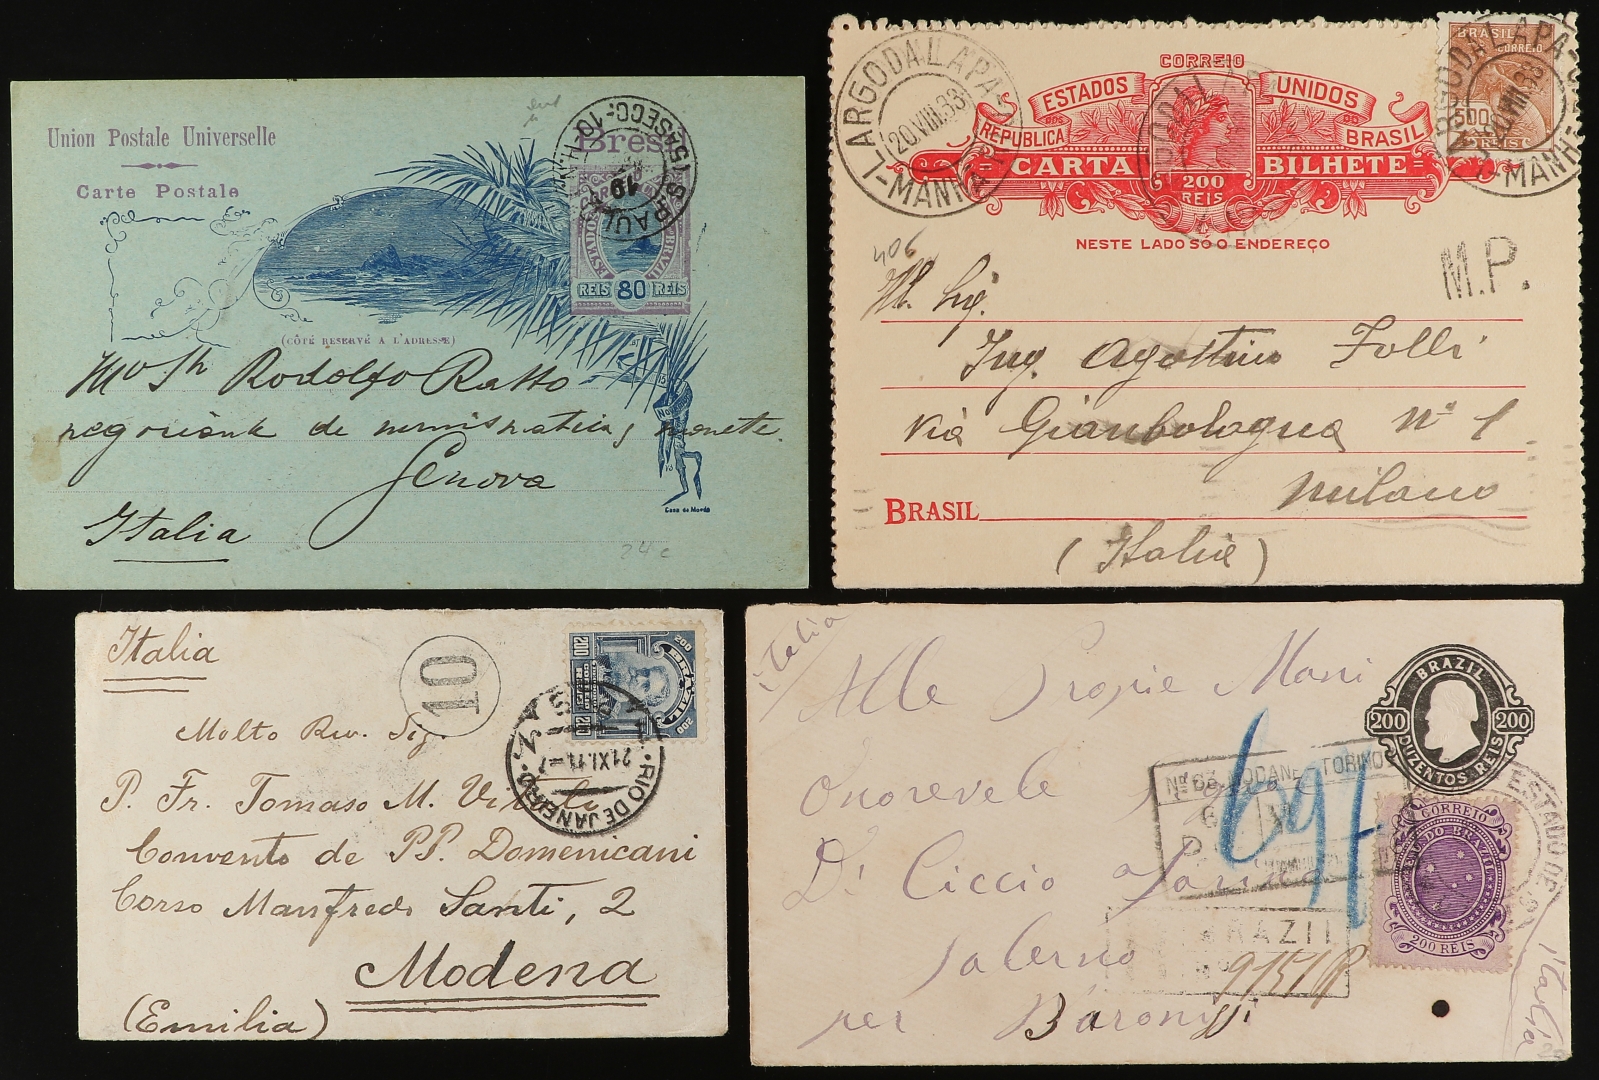 Union Postale Universelle
Carte Postale
Brésil
REIS 80 REIS
(CÔTÉ RESERVÉ A L'ADRESSE)
Rodolfo Ratto
negoziante de numismatica, monete.
Genova
Italia
Casa da Moeda
24 c
LARGO DA LAPA
20.VIII.33
7-MANHÃ
CORREIO
ESTADOS UNIDOS
REPUBLICA DOS DO BRASIL
CARTA BILHETE
200
REIS
NESTE LADO SÓ O ENDEREÇO
BRASIL
CORREIO
500
REIS
LARGO DA LAPA
7-MANHÃ
406
M.P.
Ing. Agostino Folli
Via Gianbologna N° 1
BRASIL Milano
(Italia)
Italia
10
200
BRAZIL
200
RIO DE JANEIRO
21.XI.11
Molto Rev. Sig.
P. Fr. Tomaso M.
Convento de PP. Domenicani
Corso Manfredo Santi, 2
Modena
(Emilia)
Italia
Alle Propie Mani
Onorevele
Di Ciccio
Salerno
per Baronissi
BRAZIL
200 200
DUZENTOS REIS
CORREIO
200 REIS
MODANE - TORINO
691
BRAZIL
Nº 9151
Italia